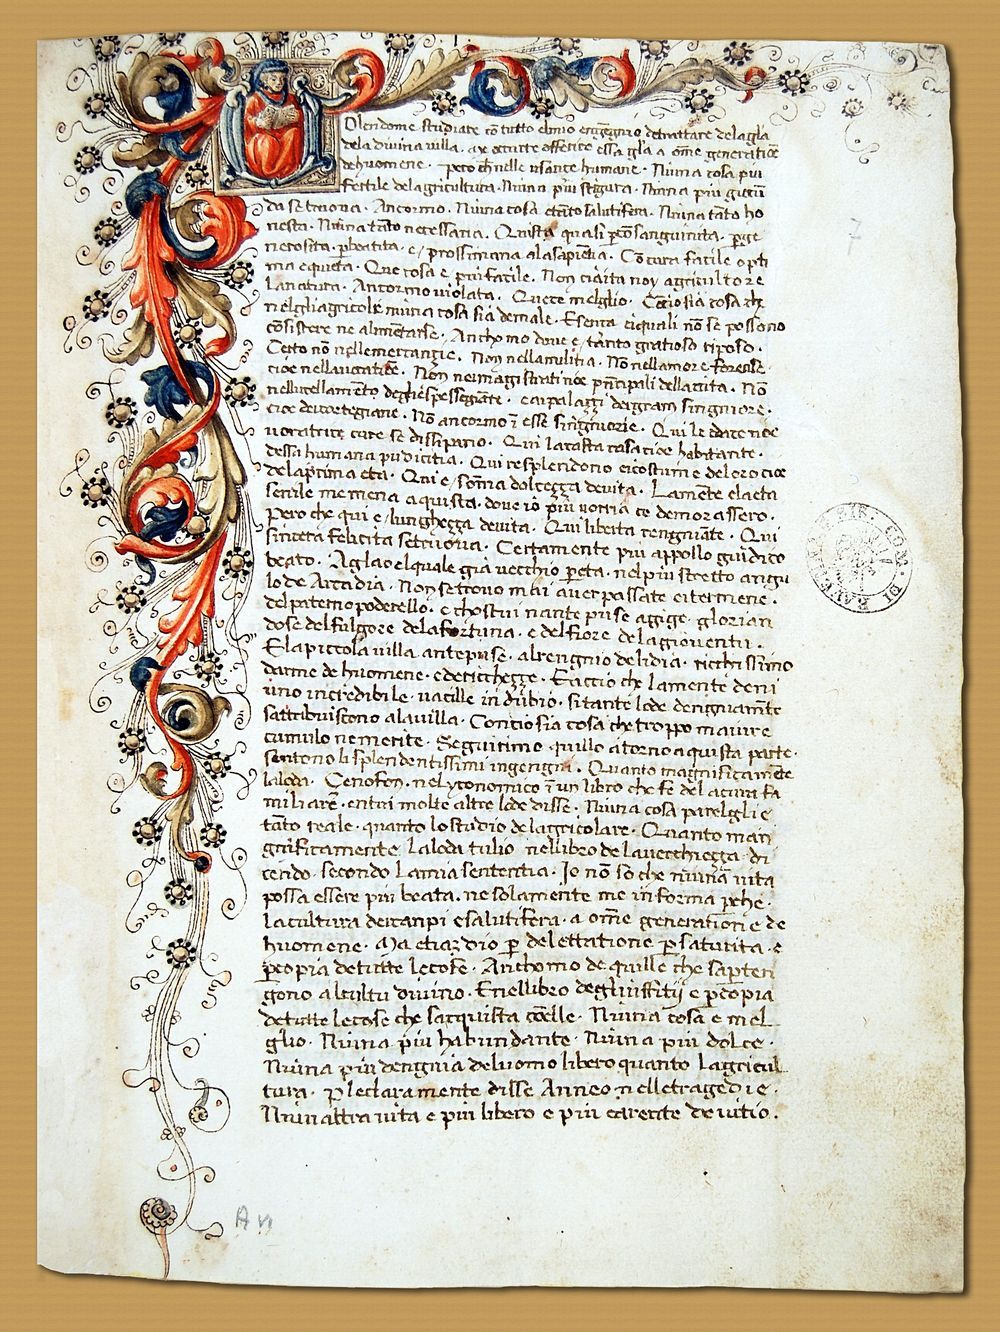 Volendome studiare cō tutto elmio engengnio detrattare de la gla
de la divina villa. ax ocutte offerite essa gla a ome generatioē
de huomene. Pero ch nelle usançe humane. Niuna cosa piu
fertile del agricultura. Niuna piu sigura. Niuna piu giocū
da se truova. Ancormo. Niuna cosa etāto salutifera. Niuna tāto ho
nesta. Niuna tāto necessaria. Quista quasi sanguinita.
nerosita. beatita. e prossimana ala sapiēcia. Cō cura facile opti
ma e quieta. Que cosa e piu facile. Non noy agricultore
La natura. Ancormo violata. Que e melglio. Cōcio sia cosa ch
nelgli agricole niuna cosa sia demale. E senza e quali nō se possono
cōsistere ne alimētarse. Anchomo dove e tanto gratioso riposo.
Certo nō nelle mercançie. Non nella militia. Nō nell amore forense.
cioe nell avocatiōe. Non nei magistrati noe prīcipali dellacita. Nō
nell ucellamēto. e ai palaçi dei gram singniore.
cioe dei cortegiane. Nō ancormo ī esse singniorie. Qui le edace noe
voratrice cure se dissipano. Qui la casta casa cioe habitante.
dessa humana pudicitia. Qui resplendono ei costumi e de lezo cioe
dela prima eta. Qui e soma dolcezza de vita. La mēte e la eta
senile me mena a quista. dove io piu vorria ce demorassero.
Pero che qui e lunghezza de vita. Qui liberta rengniāte. Qui
sincera felicita se truova. Certamente piu appollo giudico
beato. Aglao el quale gia vecchio era. nel piu stretto angu
lo de Arcadia. Non se trovo mai aver passate ei termene.
del paterno poderello. e chostui nante puse a gige. glorian
dose del fulgore de la fortuna. e del fiore de la gioventu.
E la piccola villa antepuse. al rengnio de lidia. ricchissimo
darme de huomene. e de ricchezze. E accio che la mente de ni
uno incredibile. vacille in dubio. si tante lode dengniamēte
sattribuiscono ala villa. Concio sia cosa che troppo magiure
cumulo ne merite. Seguitimo quillo atorno a quista parte.
sentono li splendentissimi ingengni. Quanto magnificamēte
la loda. Cenofon. nel yconomico ī un libro che fe de la cura fa
miliare. entri molte altre lode disse. Niuna cosa parelgli e
tāto reale. quanto lo studio de lagricolare. Quanto man
gnificamente La loda tulio nel libro de la vecchiezza. di
cendo. secondo La mia sententia. Io nō so che niuna vita
possa essere piu beata. ne solamente me informa pche.
La cultura dei canpi e salutifera. a ome generatione de
huomene. Ma etiamdio p delettatione p saturita. e
pcopia de tutte le cose. Anchomo de quille che sapten
gono al cultu divino. E nel libro degli uffitij e pcopia
de tutte le cose che sacquista colle. Niuna cosa e mel
glio. Niuna piu habundante. Niuna piu dolce.
Niuna piu dengnia deluomo libero quanto Lagricul
tura. Pleclaramente disse Anneo nelle tragedie.
Niun altra vita e piu libero e piu carente de vitio.
7
A VI